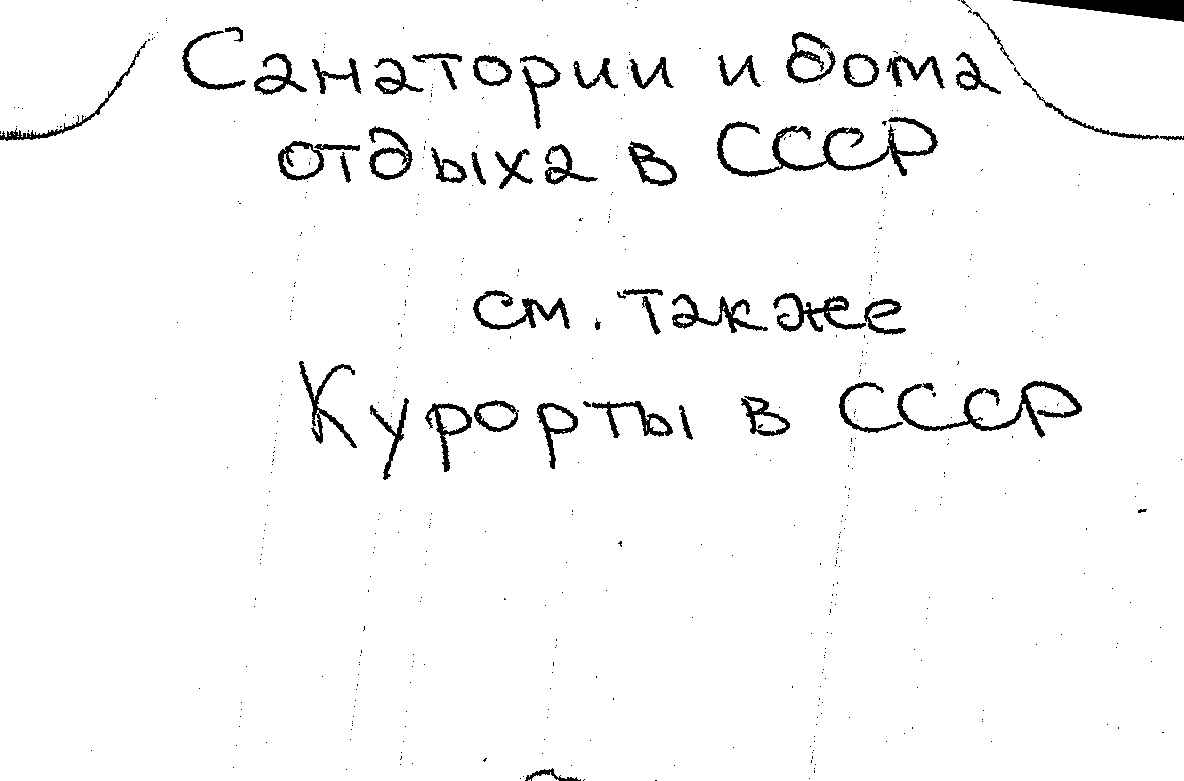 Санатории и дома
отдыха в СССР
см. также
Курорты в СССР